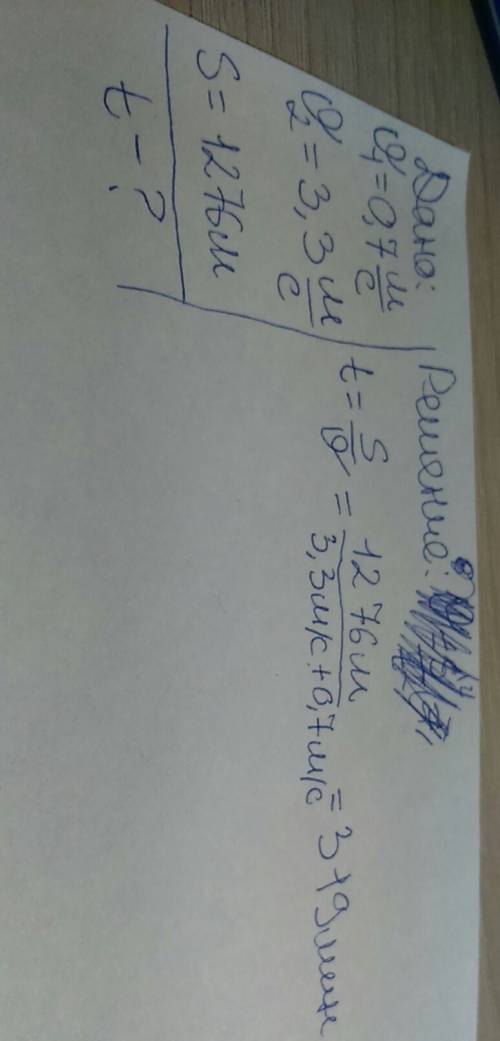 Дано:
υ₁ = 0,7 м/с
υ₂ = 3,3 м/с
S = 1276 м
t - ?
Решение:
t = S/υ = 1276 м / 3,3 м/с + 0,7 м/с = 319